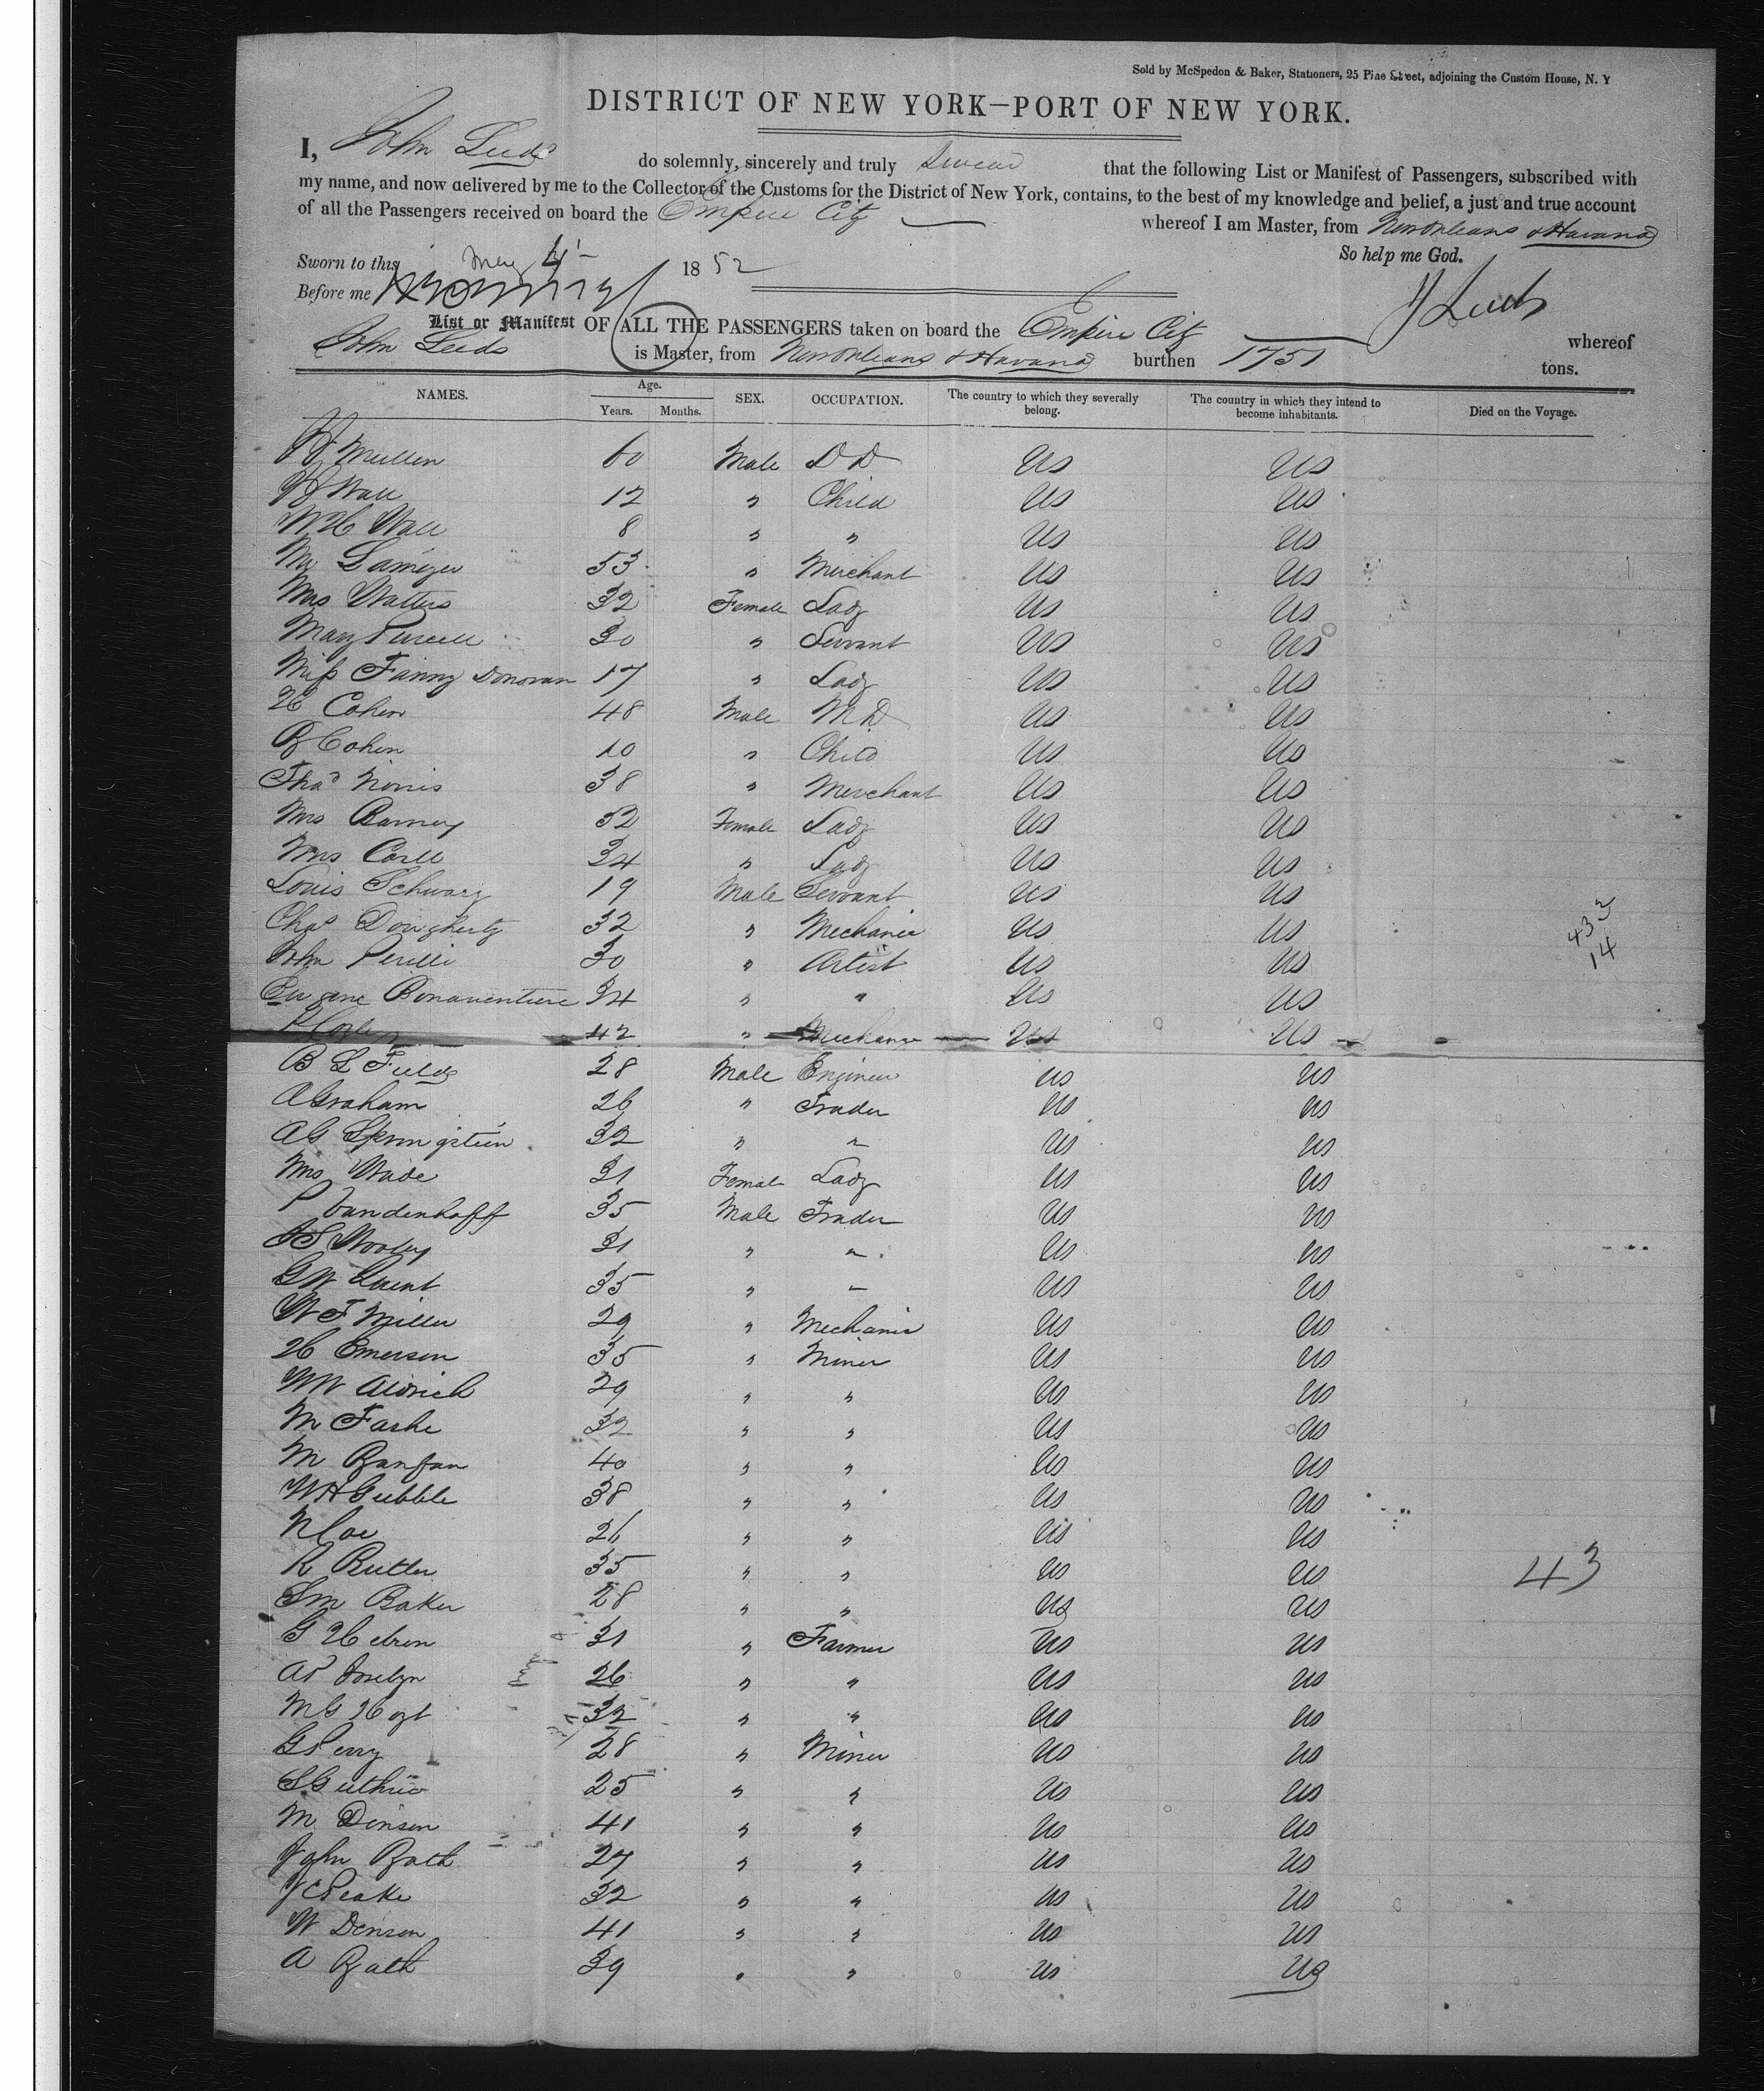 Sold by McSpedon & Baker, Stationers, 25 Pine Street, adjoining the Custom House, N. Y
DISTRICT OF NEW YORK—PORT OF NEW YORK.
I, John Leeds do solemnly, sincerely and truly swear that the following List or Manifest of Passengers, subscribed with
my name, and now delivered by me to the Collector of the Customs for the District of New York, contains, to the best of my knowledge and belief, a just and true account
of all the Passengers received on board the Empire City whereof I am Master, from New Orleans & Havana
Sworn to this May 4 1852 So help me God.
Before me J Leeds
List or Manifest OF ALL THE PASSENGERS taken on board the Empire City whereof
John Leeds is Master, from New Orleans & Havana burthen 1751 tons.
NAMES. Age. Years. Months. SEX. OCCUPATION. The country to which they severally belong. The country in which they intend to become inhabitants. Died on the Voyage.
Mullen 60 Male DD US US
Wall 12 " Child US US
W H Wall 8 " " US US
Mr 53 " Merchant US US
Mrs Watters 32 Female Lady US US
Mary Purcell 30 " Servant US US
Miss Fanny Donovan 17 " Lady US US
H Cohen 48 Male MD US US
Cohen 10 " Child US US
Thos Norris 38 " Merchant US US
Mrs Barney 52 Female Lady US US
Mrs 34 " Lady US US
Louis Schwarz 19 Male Servant US US
Chas Dougherty 32 " Mechanic US US
John 30 " Artist US US
Eugene Bonaventure 34 " " US US
42 " Mechanic US US
B L Field 28 Male Engineer US US
A Graham 26 " Trader US US
A G Springstein 32 " " US US
Mrs Wade 31 Female Lady US US
P Vandenhoff 35 Male Trader US US
J S 31 " " US US
G W 35 " " US US
W F Miller 29 " Mechanic US US
H Emerson 35 " Miner US US
W W Aldrich 29 " " US US
M 32 " " US US
M 40 " " US US
W H Gubble 38 " " US US
N Coe 26 " " US US
R Butler 35 " " US US
Sm Baker 28 " " US US
G Hebron 31 " Farmer US US
A P Joselyn 26 " " US US
M G Hoyt 32 " " US US
G Perry 28 " Miner US US
S Guthrie 25 " " US US
M Denson 41 " " US US
John Rath 27 " " US US
J C Peake 32 " " US US
W Denson 41 " " US US
A Rath 39 " " US US
43
14
43